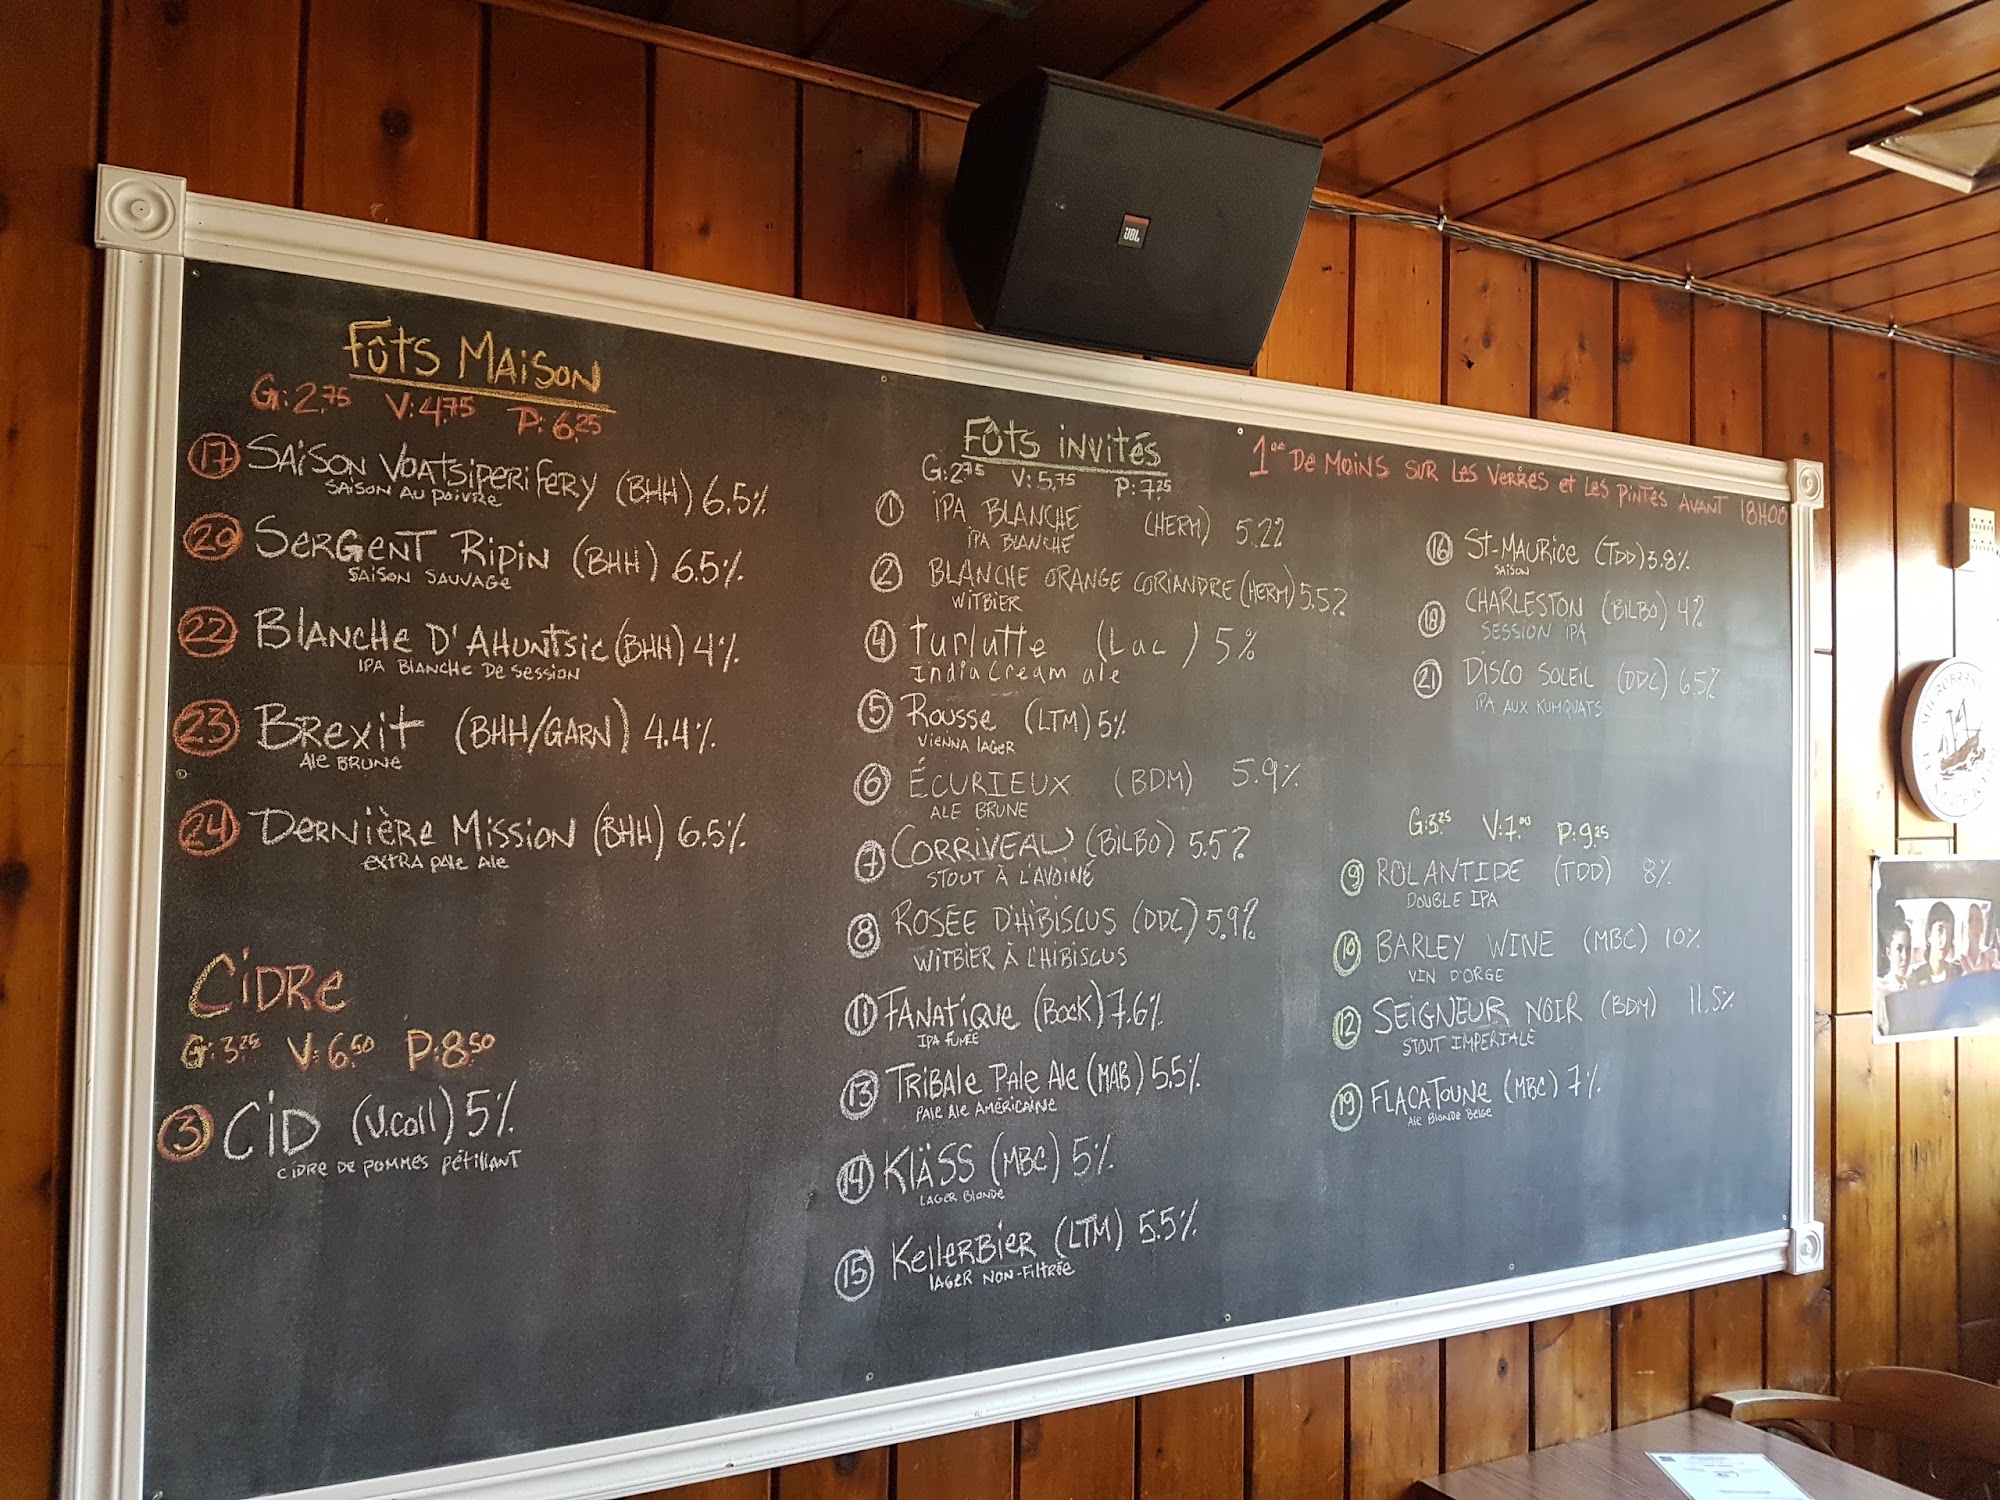 Fûts Maison
G: 2.75 V: 4.75 P: 6.25
17 Saison Voatsiperifery (BHH) 6.5%
Saison au poivre
20 Sergent Ripin (BHH) 6.5%
Saison sauvage
22 Blanche d'Ahuntsic (BHH) 4%
IPA Blanche de session
23 Brexit (BHH/GARN) 4.4%
Ale brune
24 Dernière Mission (BHH) 6.5%
extra pale ale
Cidre
G: 3.25 V: 6.50 P: 8.50
3 CID (V.Coll) 5%
cidre de pommes pétillant
Fûts invités
G: 2.75 V: 5.75 P: 7.25
1 IPA BLANCHE (HERM) 5.2%
IPA BLANCHE
2 BLANCHE ORANGE CORIANDRE (HERM) 5.5%
WITBIER
4 Turlutte (Lac ) 5%
India Cream ale
5 Rousse (LTM) 5%
Vienna lager
6 ÉCURIEUX (BDM) 5.9%
ALE BRUNE
7 CORRIVEAU (BILBO) 5.5%
STOUT À L'AVOINE
8 ROSÉE D'HIBISCUS (DDC) 5.9%
WITBIER À L'HIBISCUS
11 Fanatique (Bock) 7.6%
IPA fumée
13 Tribale Pale Ale (MAB) 5.5%
Pale Ale Américaine
14 Kläss (MBC) 5%
Lager Blonde
15 Kellerbier (LTM) 5.5%
lager non-filtrée
1.00 de moins sur les verres et les pintes avant 18H00
16 St-Maurice (TDD) 3.8%
SAISON
18 CHARLESTON (BILBO) 4%
SESSION IPA
21 DISCO SOLEIL (DDC) 6.5%
IPA AUX KUMQUATS
G: 3.25 V: 7.00 P: 9.25
9 ROLANTIDE (TDD) 8%
DOUBLE IPA
10 BARLEY WINE (MBC) 10%
VIN D'ORGE
12 SEIGNEUR NOIR (BDM) 11.5%
STOUT IMPERIALE
19 Flacatoune (MBC) 7%
Ale Blonde Belge
JBL